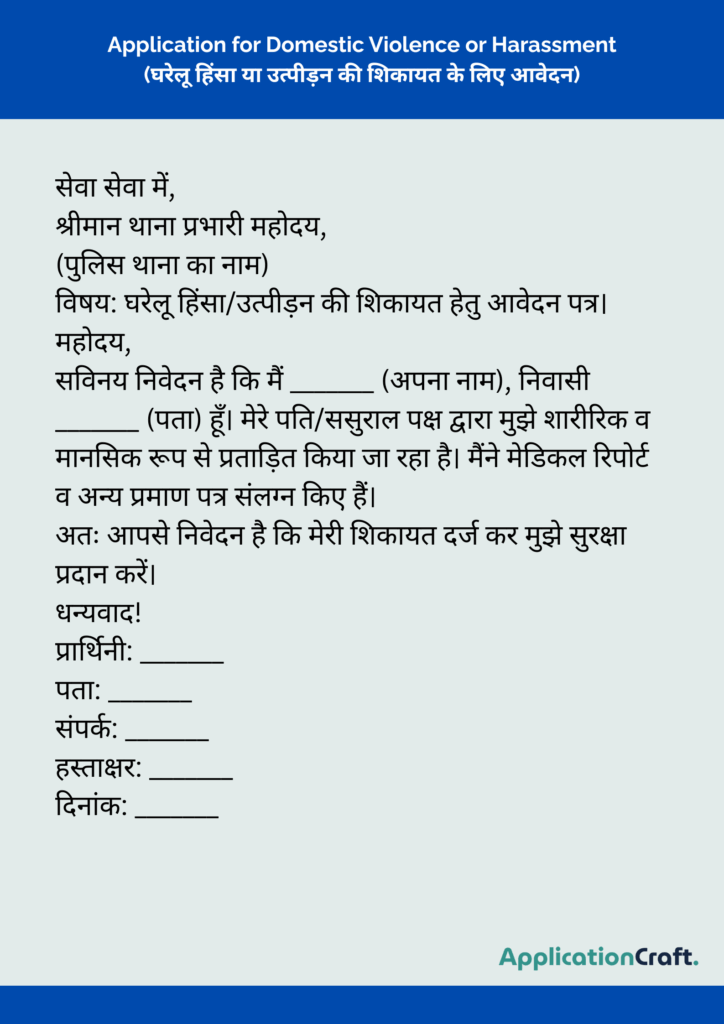 Application for Domestic Violence or Harassment
(घरेलू हिंसा या उत्पीड़न की शिकायत के लिए आवेदन)
सेवा सेवा में,
श्रीमान थाना प्रभारी महोदय,
(पुलिस थाना का नाम)
विषय: घरेलू हिंसा/उत्पीड़न की शिकायत हेतु आवेदन पत्र।
महोदय,
सविनय निवेदन है कि मैं _______ (अपना नाम), निवासी
_______ (पता) हूँ। मेरे पति/ससुराल पक्ष द्वारा मुझे शारीरिक व
मानसिक रूप से प्रताड़ित किया जा रहा है। मैंने मेडिकल रिपोर्ट
व अन्य प्रमाण पत्र संलग्न किए हैं।
अतः आपसे निवेदन है कि मेरी शिकायत दर्ज कर मुझे सुरक्षा
प्रदान करें।
धन्यवाद!
प्रार्थिनी: _______
पता: _______
संपर्क: _______
हस्ताक्षर: _______
दिनांक: _______
ApplicationCraft.